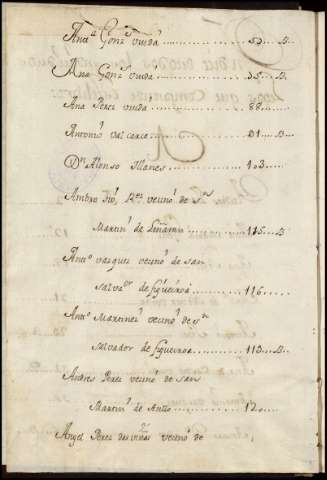 Antª Gonzˢ viuda ............ 53 .. B.
Ana Gonzˢ viuda ............ 35 .. B.
Ana Perez viuda ............ 88 ......
Antonio Valcarce ............ 91 ... B.
Dⁿ Alonso Illanes ............ 103 ..
Ambro Rˢ vecinº de Sⁿ
Martinº de ............ 115 .. B
Antº Vazquez vecino de San
Salvaᵒʳ de figueiroa ............ 116 ....
Antº Martinez vecinº de Sⁿ
Salvador de figueiroa ............ 118 .. B.
Andres Perez vecinº de San
Martinº de ............ 12
Angel Perez vecinº de